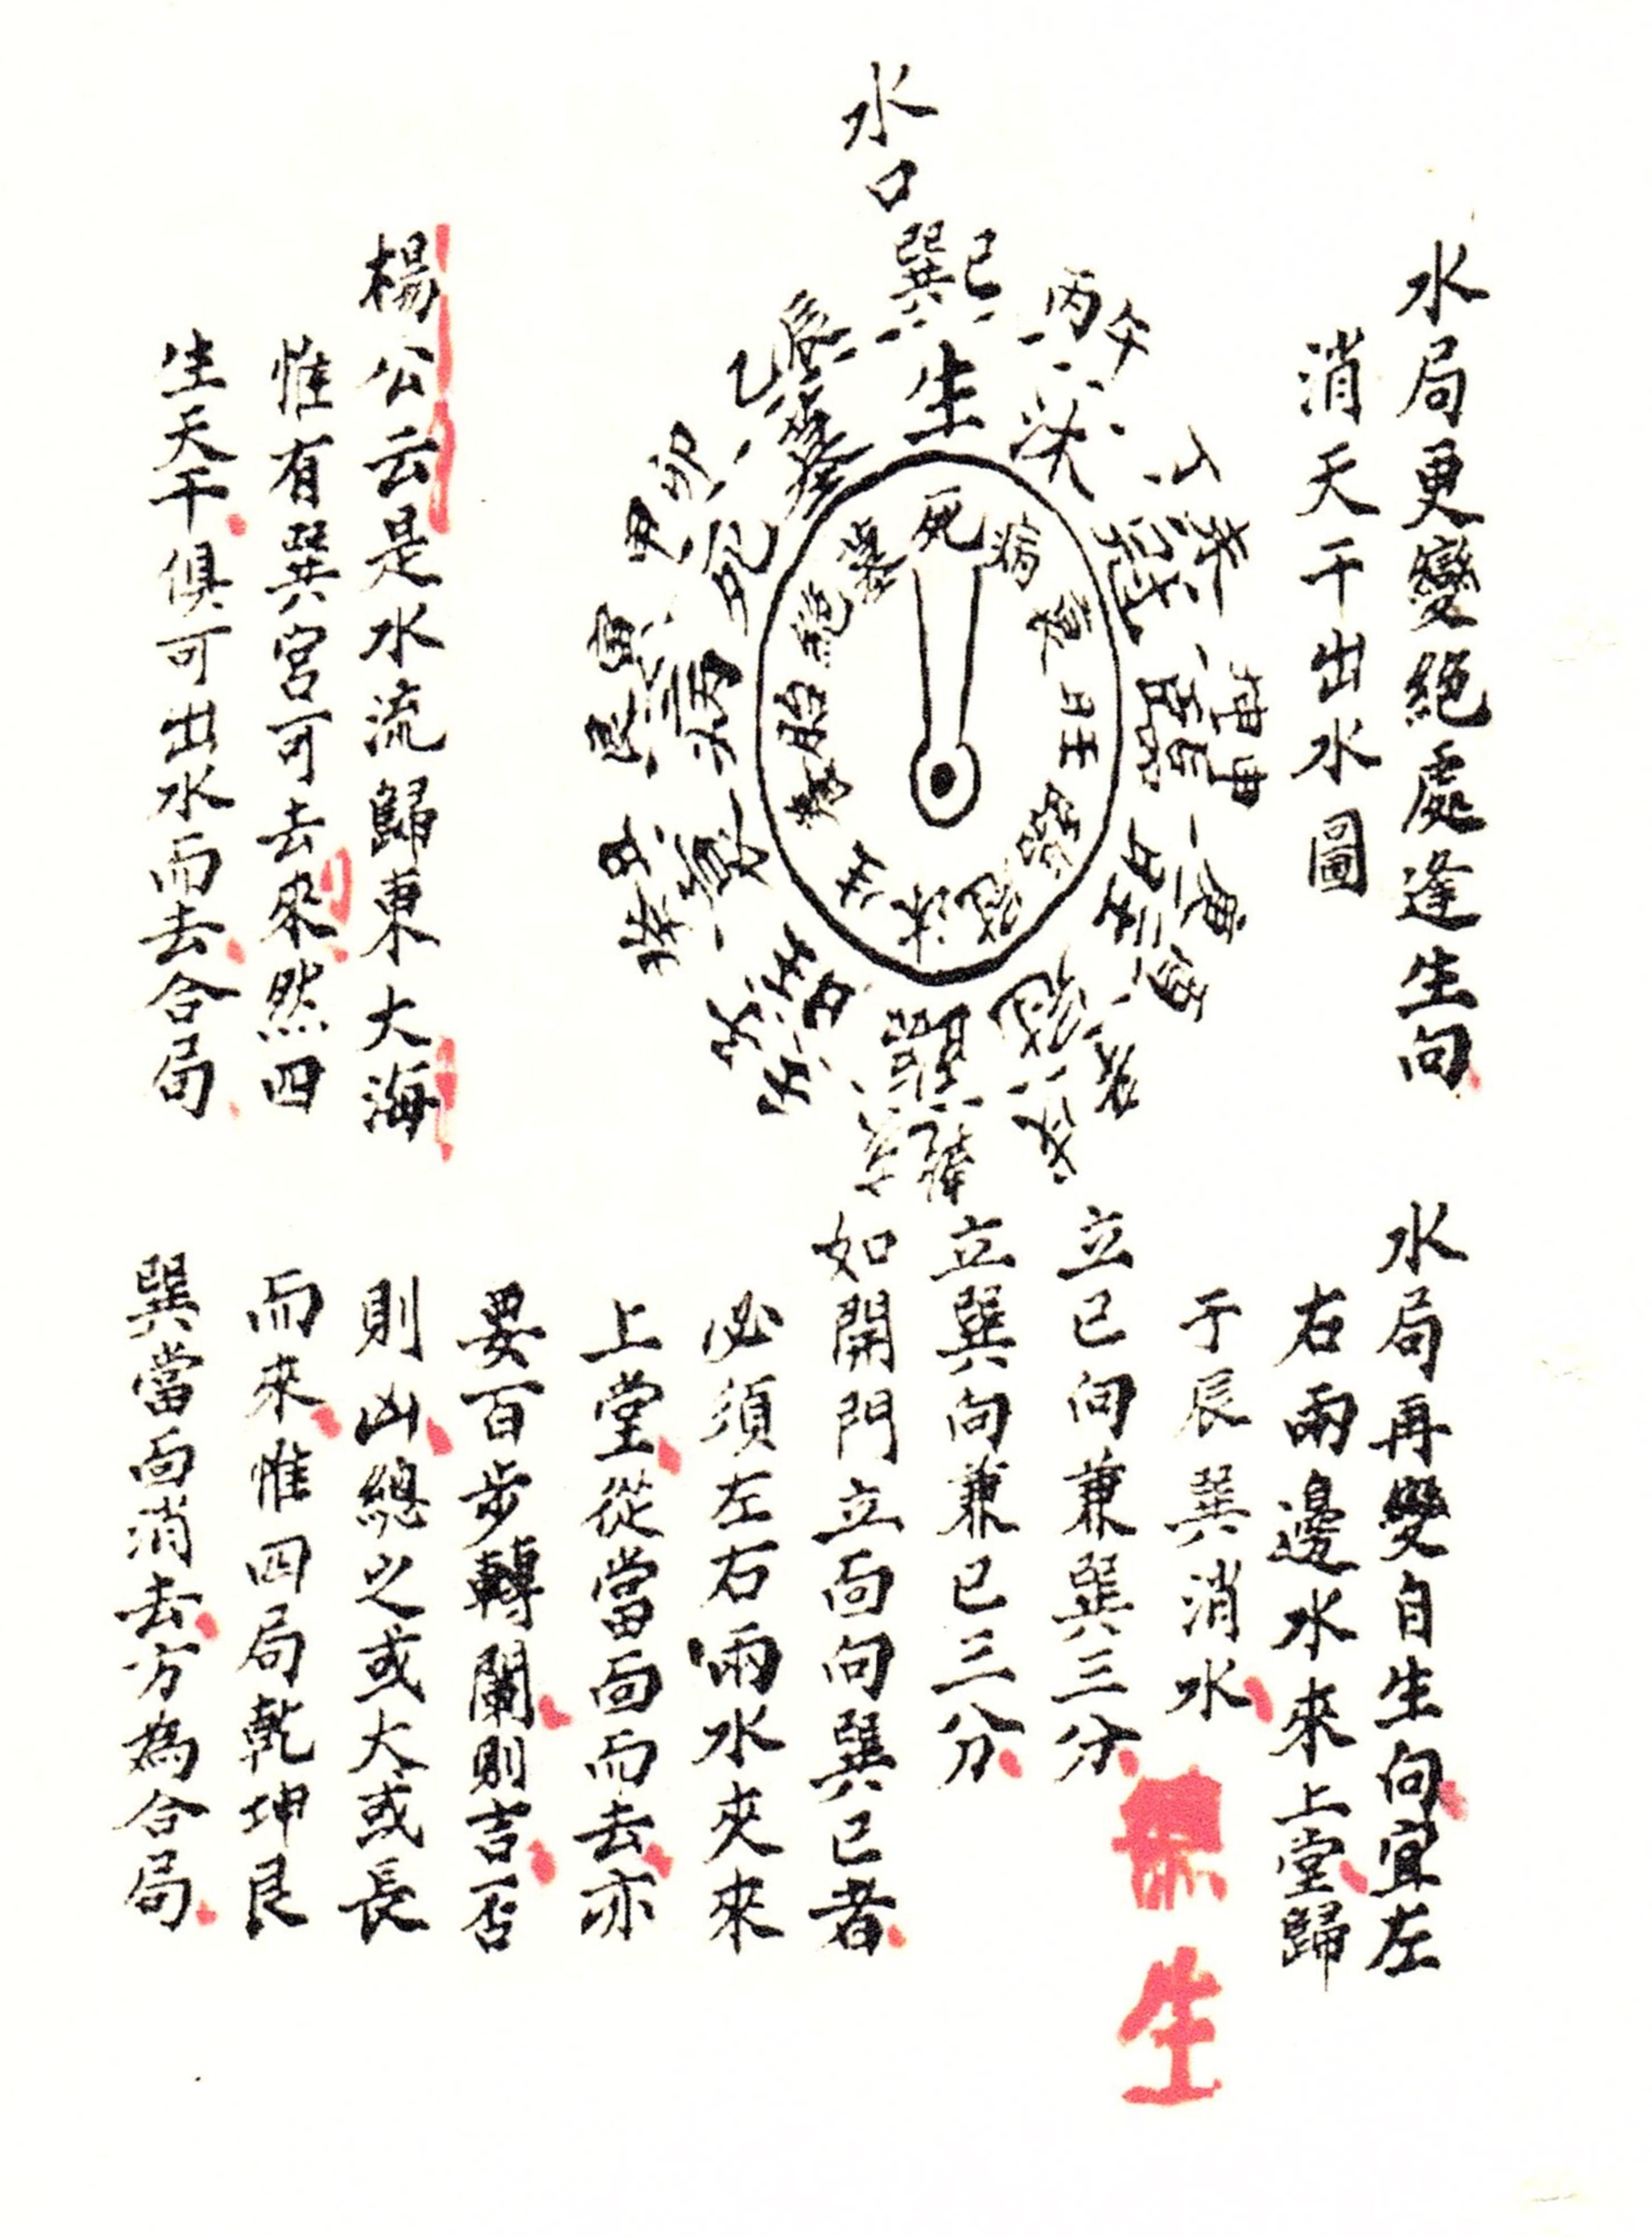 水局更變絕處逢生向
消天干出水圖
水口
巽巳
丙午
丁未
坤申
庚酉
辛戌
乾亥
壬子
癸丑
艮寅
甲卯
乙辰
生
沐
冠
臨
旺
衰
病
死
墓
死
病
衰
旺
臨
冠
沐
生
養
胎
絕
墓
楊公云是水流歸東大海
惟有巽宮可去來然四
生天干俱可出水而去合局
水局再變自生向宜左
右兩邊水來上堂歸
于辰巽消水
立巳向兼巽三分
立巽向兼巳三分
如開門立面向巽巳者
必須左右兩水夾來
上堂從當面而去亦
要百步轉闌則吉否
則凶總之或大或長
而來惟四局乾坤艮
巽當面消去方為合局
生